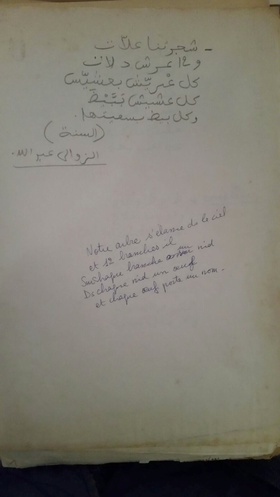 - شجرتنا علات
و 12 عرش دلات
كل عرش بعشيش
كل عشيش بتبيظ
وكل بيظ بسميتها.
(السنة)
الزوالي عبد الله.
Notre arbre s'élance de le ciel
et 12 branches il
Sur chaque branche un nid
Ds chaque nid un œuf
et chaque œuf porte un nom.